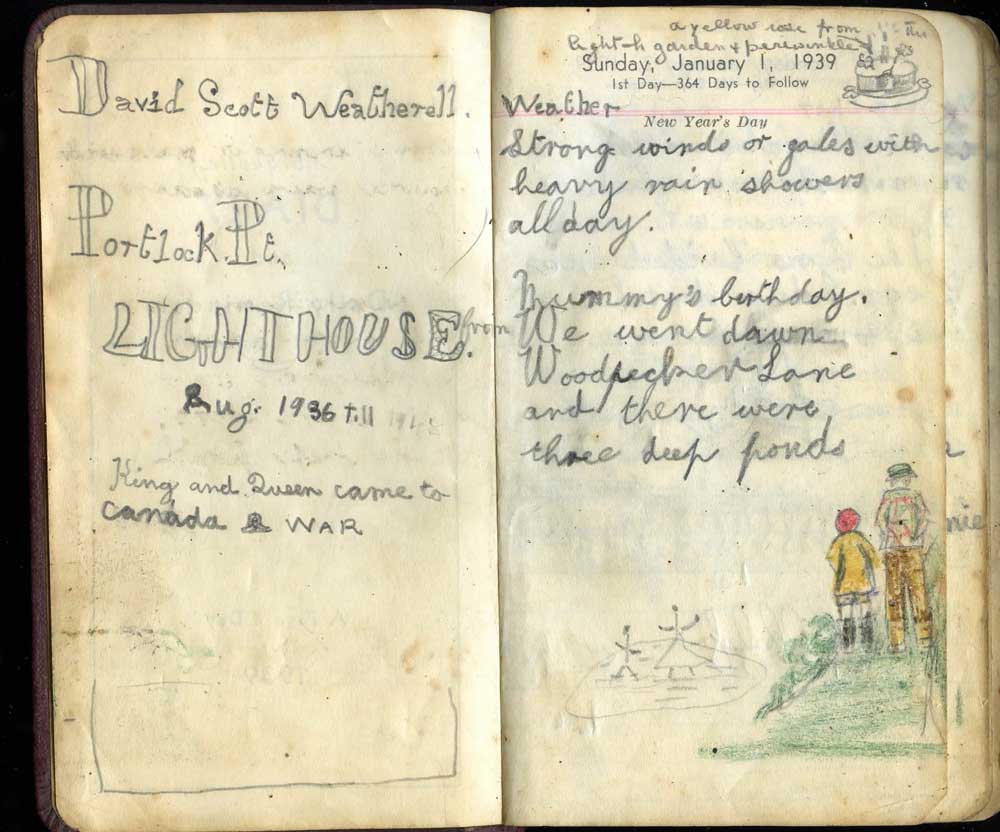 David Scott Weatherell.
Portlock Pt.
LIGHTHOUSE. from
Aug. 1936 till
King and Queen came to
Canada & WAR
a yellow rose from
light-h garden & periwinkle
Sunday, January 1, 1939
1st Day—364 Days to Follow
Weather
New Year's Day
Strong winds or gales with
heavy rain showers
all day.
Mummy's birthday.
We went dawn
Woodpecker Lane
and there were
three deep ponds
nie